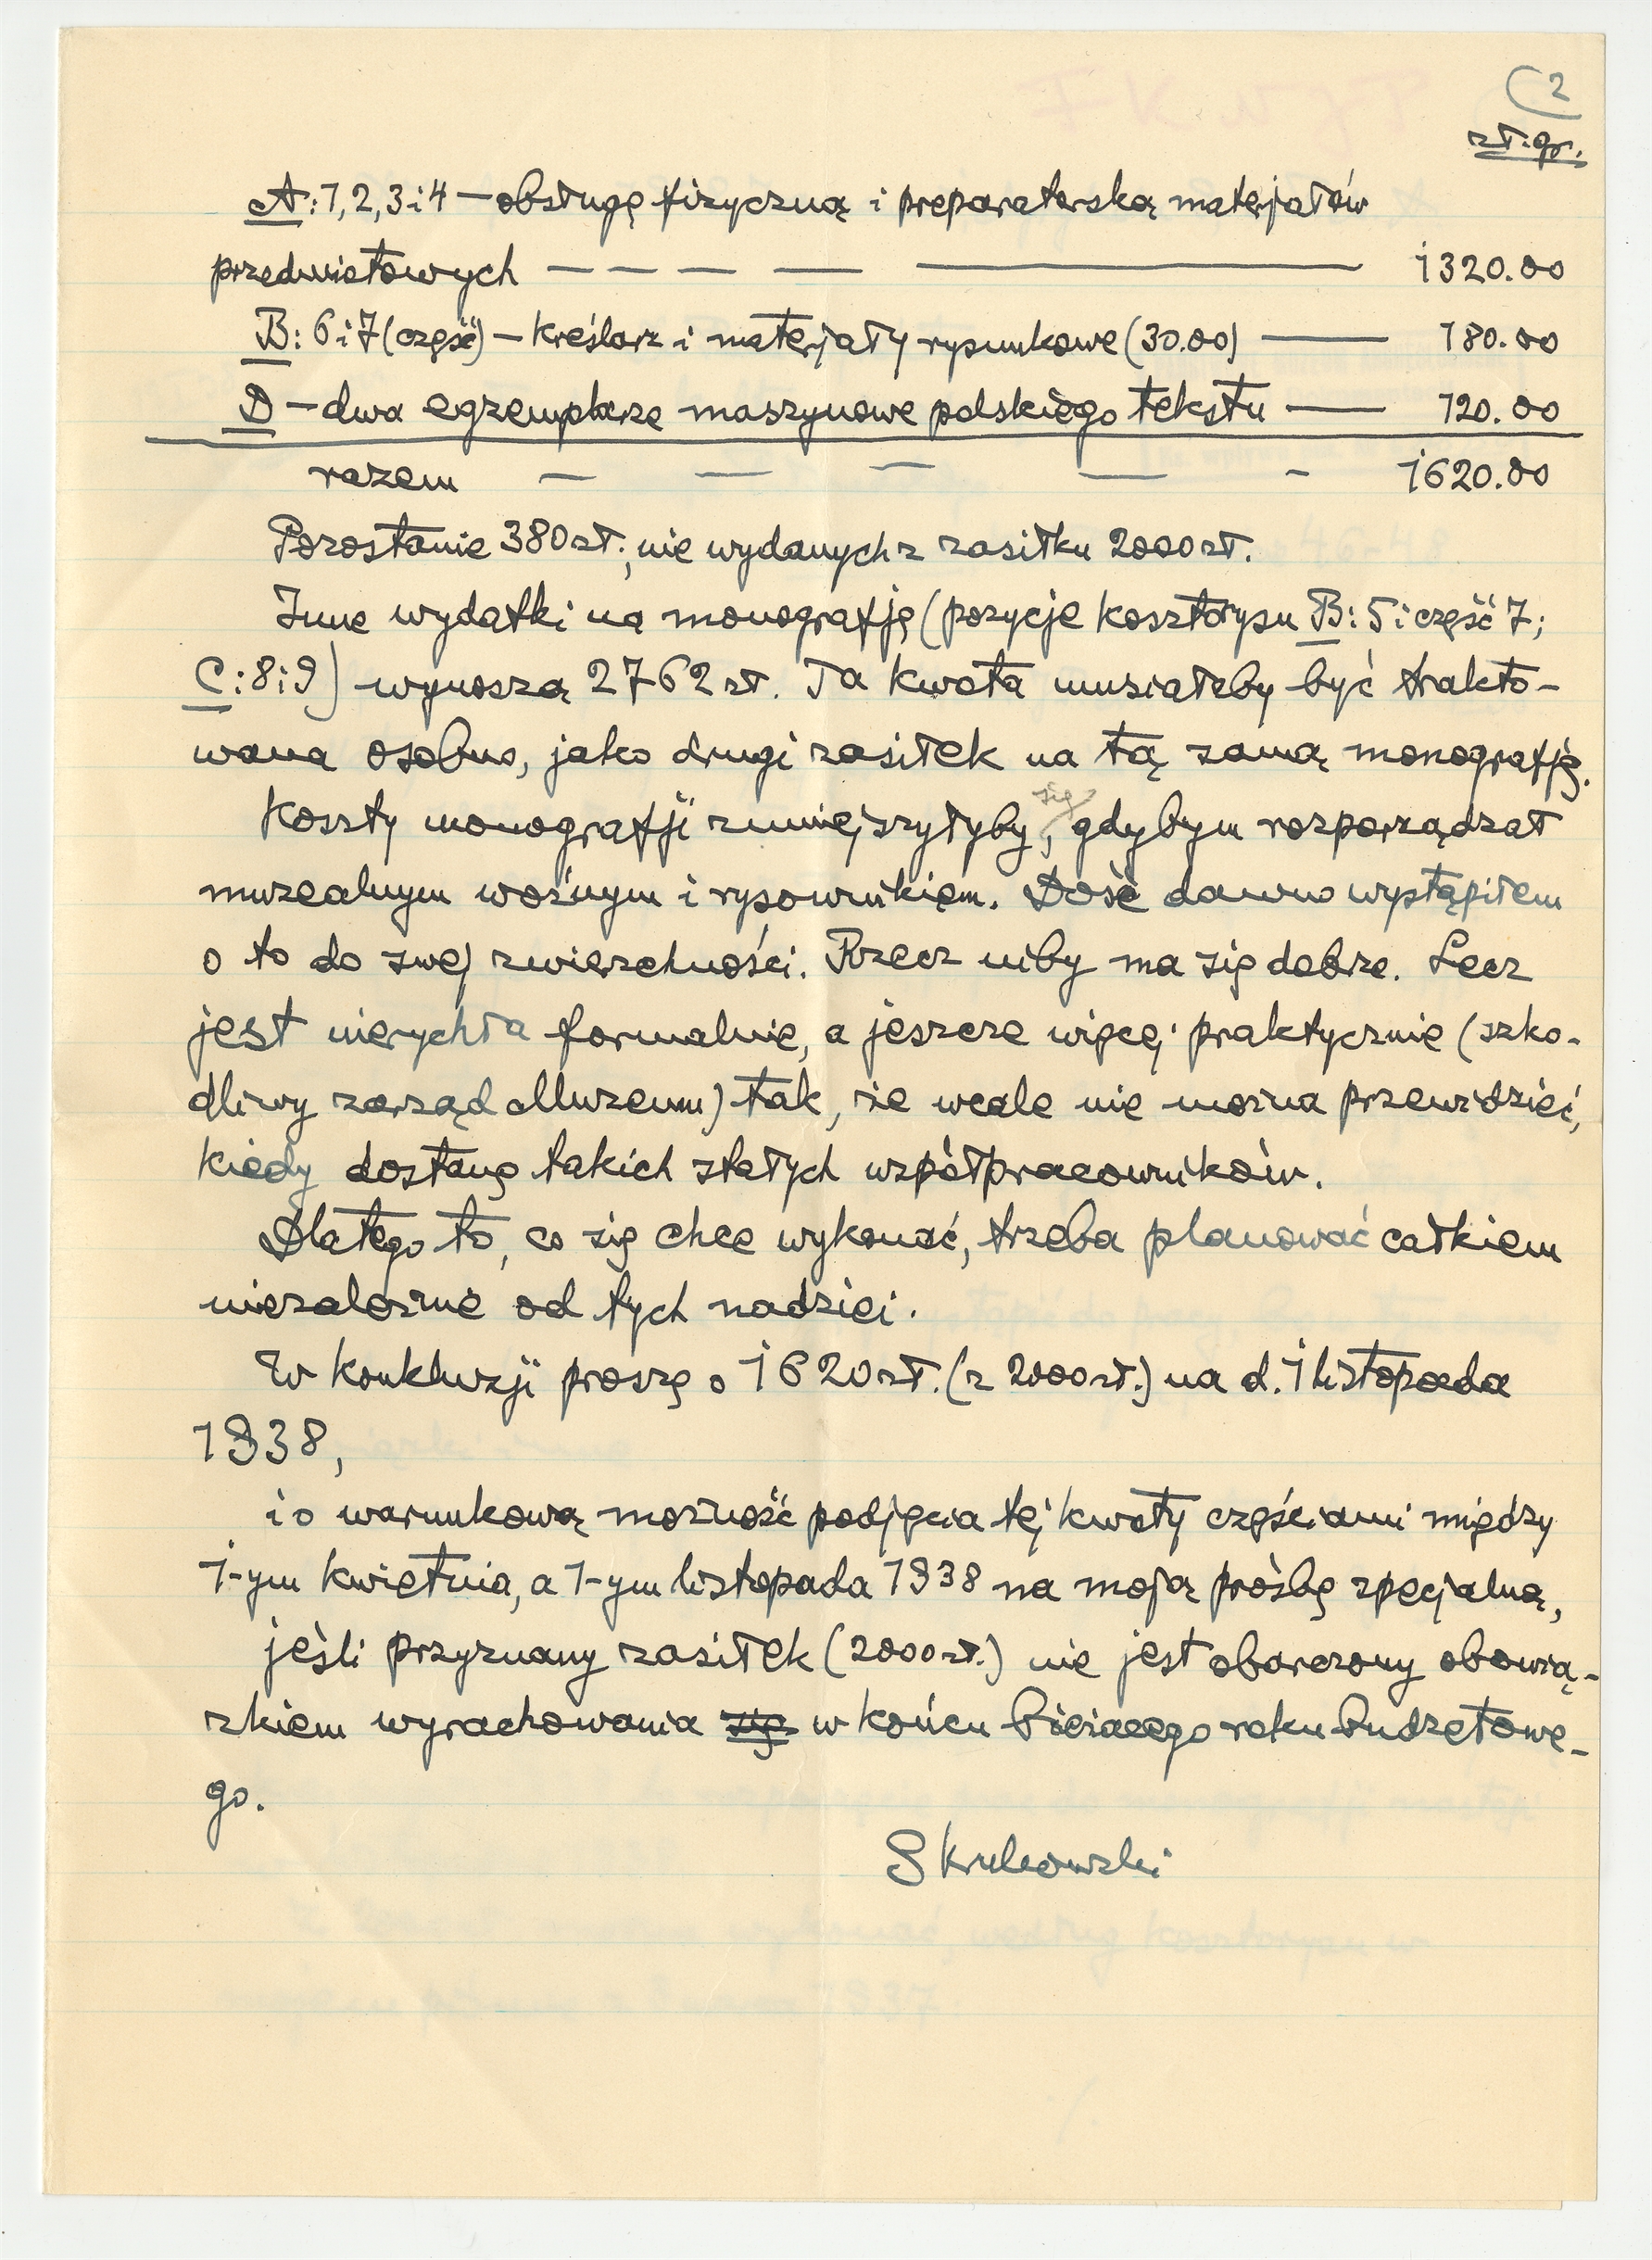 (2
zł. gr.
A: 1, 2, 3 i 4 — obsługę fizyczną i preparatorską materjałów
przedmiotowych — — — — — 1320.00
B: 6 i 7 (część) — kreślarz i materjały rysunkowe (30.00) — 180.00
D — dwa egzemplarze maszynowe polskiego tekstu — 120.00
razem — — — — - 1620.00
Pozostanie 380 zł., nie wydanych z zasiłku 2000 zł.
Inne wydatki na monografję (pozycje kosztorysu B: 5 i część 7;
C: 8 i 9) wynoszą 2762 zł. Ta kwota musiałaby być trakto-
wana osobno, jako drugi zasiłek na tą samą monografję.
Koszty monografji zmniejszyłyby się, gdybym rozporządzał
muzealnym woźnym i rysownikiem. Dość dawno wystąpiłem
o to do swej zwierzchności. Rzecz niby ma się dobrze. Lecz
jest nierychła formalnie, a jeszcze więcej praktycznie (szko-
dliwy zarząd Muzeum) tak, że wcale nie można przewidzieć,
kiedy dostanę takich stałych współpracowników.
Dlatego to, co się chce wykonać, trzeba planować całkiem
niezależnie od tych nadziei.
W konkluzji proszę o 1620 zł. (z 2000 zł.) na d. 1 listopada
1938,
i o warunkową możność podjęcia tej kwoty częściami między
1-ym kwietnia, a 1-ym listopada 1938 na moją prośbę specjalną,
jeśli przyznany zasiłek (2000 zł.) nie jest obarczony obowią-
zkiem wyrachowania się w końcu bieżącego roku budżetowe-
go.
S Krukowski